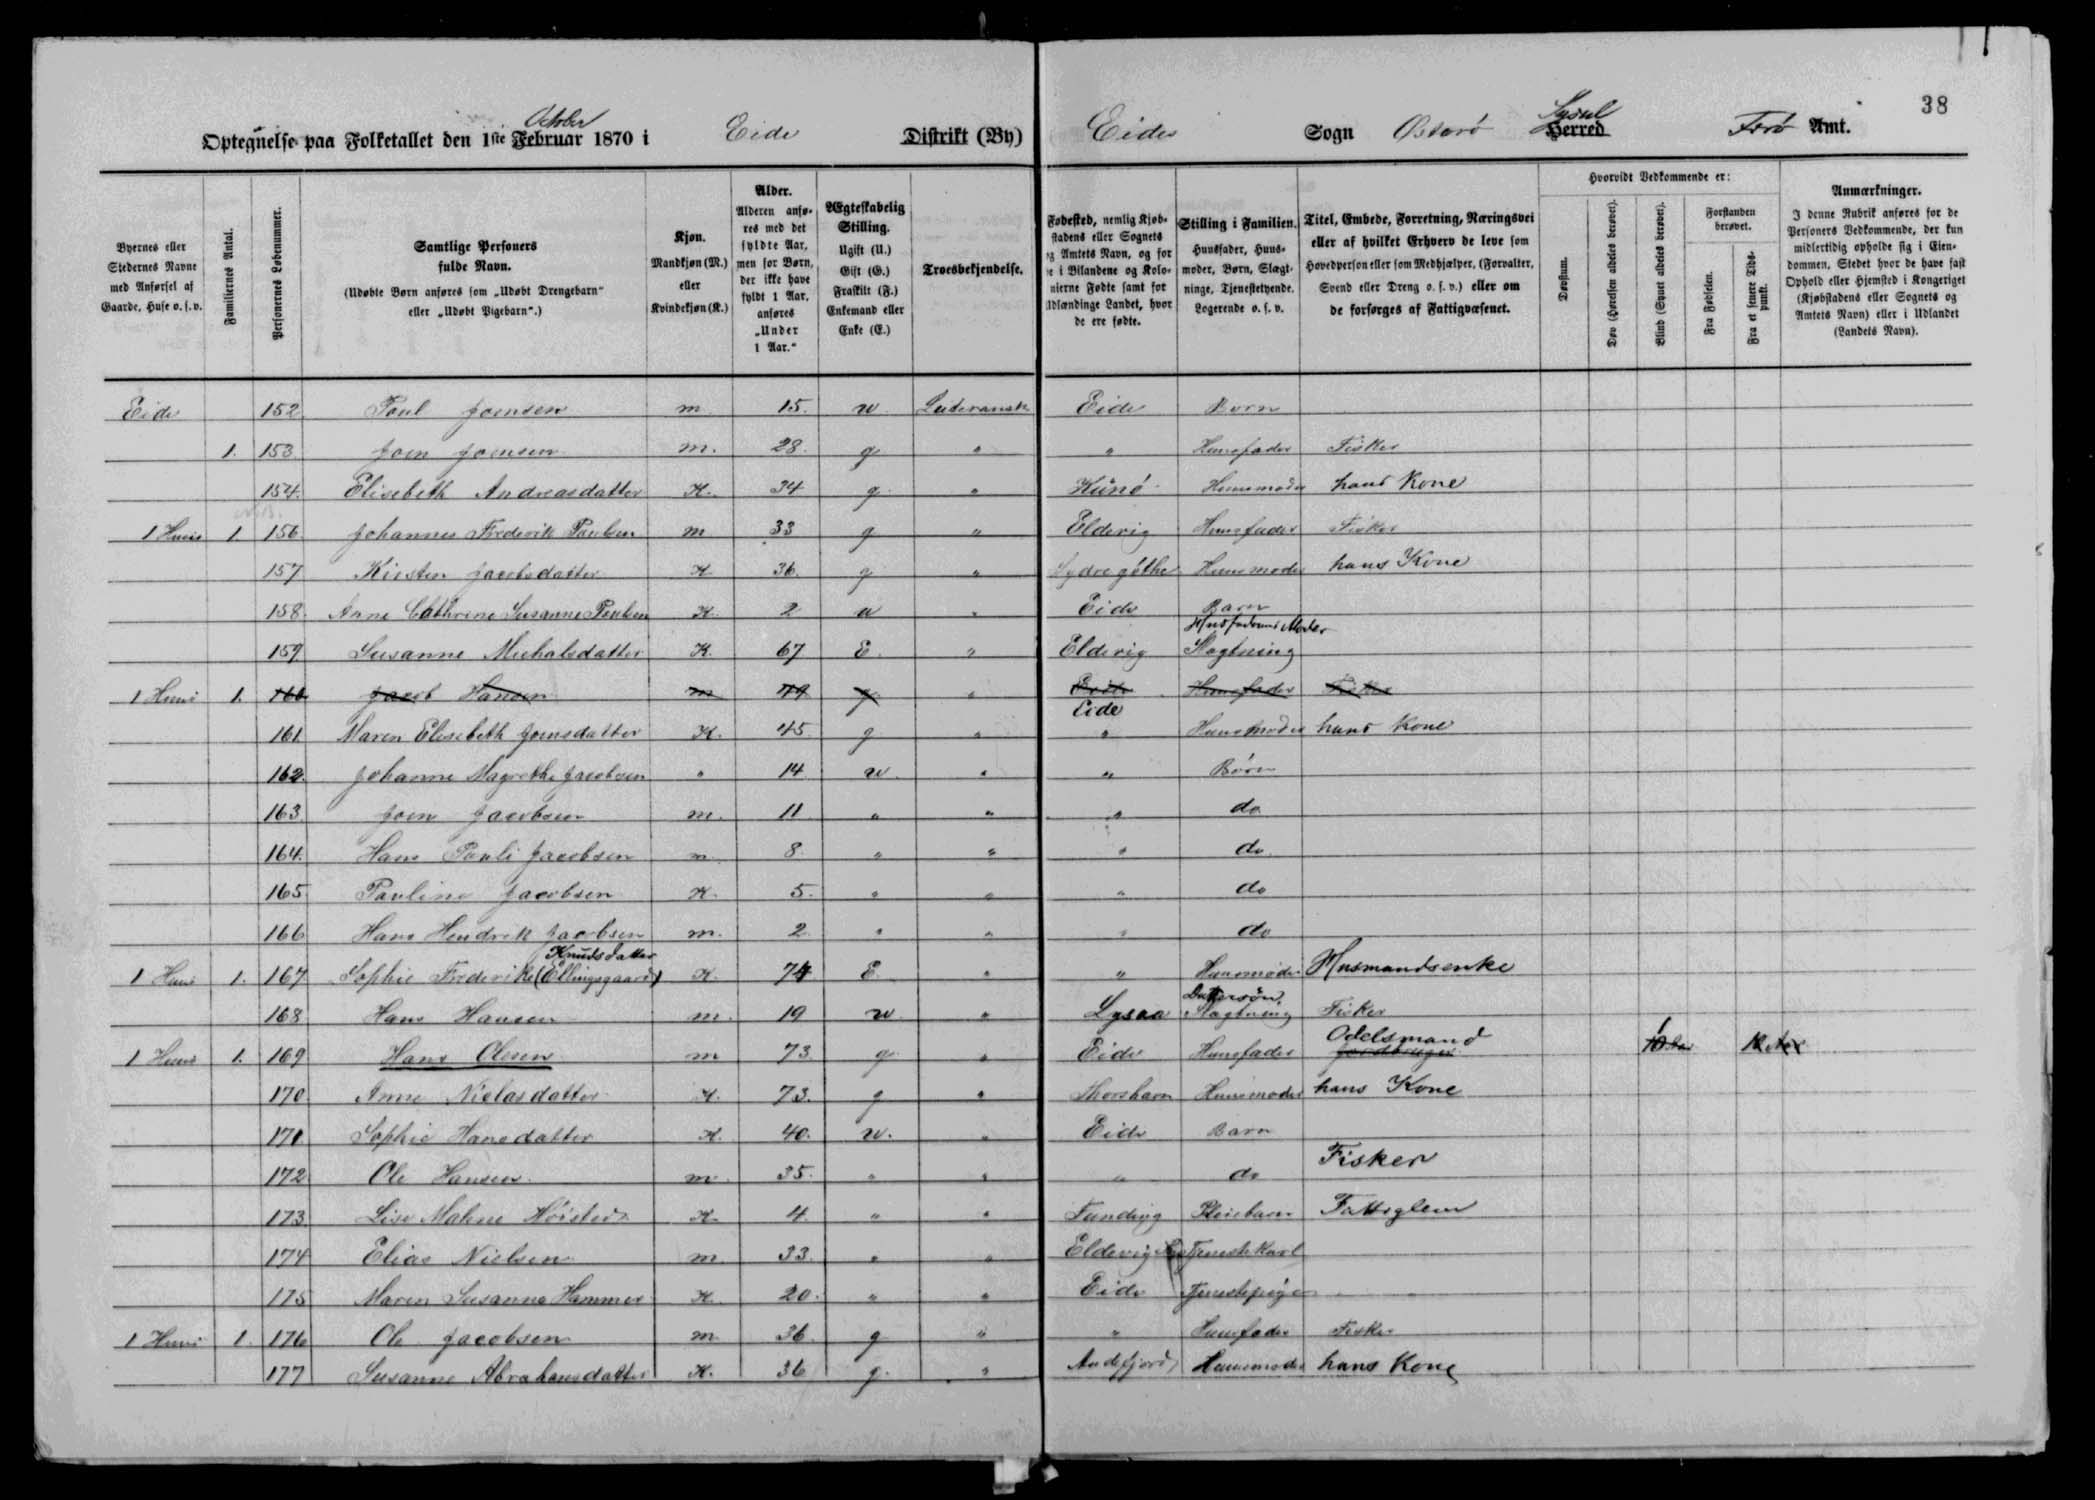 38
Optegnelse paa Folketallet den 1ste Februar 1870 i October Eide Distrikt (By) Eides Sogn Østerø Herred Sysul Færø Amt.
Byernes eller Stedernes Navne med Anførsel af Gaarde, Huse o. s. v.
Familiernes Antal.
Personernes Løbenummer.
Samtlige Personers fulde Navn. (Udøbte Børn anføres som „Udøbt Drengebarn“ eller „Udøbt Pigebarn“.)
Kjøn. Mandkjøn (M.) eller Kvindekjøn (K.)
Alder. Alderen anføres med det fyldte Aar, men for Børn, der ikke have fyldt 1 Aar, anføres „Under 1 Aar.“
Ægteskabelig Stilling. Ugift (U.) Gift (G.) Fraskilt (F.) Enkemand eller Enke (E.)
Troesbekjendelse.
Fødested, nemlig Kjøbstadens eller Sognets og Amtets Navn, og for de i Bilandene og Kolonierne Fødte samt for Udlændinge Landet, hvor de ere fødte.
Stilling i Familien. Huusfader, Huusmoder, Børn, Slægtninge, Tjenestetyende, Logerende o. s. v.
Titel, Embede, Forretning, Næringsvei eller af hvilket Erhverv de leve som Hovedperson eller som Medhjælper, (Forvalter, Svend eller Dreng o. s. v.) eller om de forsørges af Fattigvæsenet.
Hvorvidt Vedkommende er:
Døvstum.
Døv (Hørelsen aldeles berøvet).
Blind (Synet aldeles berøvet).
Forstanden berøvet.
Fra Fødselen.
Fra et senere Tidspunkt.
Anmærkninger. I denne Rubrik anføres for de Personers Vedkommende, der kun midlertidig opholde sig i Eiendommen, Stedet hvor de have fast Ophold eller Hjemsted i Kongeriget (Kjøbstadens eller Sognets og Amtets Navn) eller i Udlandet (Landets Navn).
Eide 152 Poul Joensen m 15. u Luteransk Eide Børn
1. 153 Joen Joensen m. 28. g " " Huusfader Fisker
154. Elisebeth Andreasdatter K. 34 g " Kunø Huusmoder hans Kone
1 Huus 1. 156 Johannes Frederik Poulsen m 33 g " Elderig Huusfader Fisker
157 Kirsten Jacobsdatter K 36. g " Sydregöthe Huusmoder hans Kone
158. Anne Cathrine Susanne Poulsen K. 2 u " Eide Barn
159. Susanne Michalsdatter K. 67 E. " Elderig Husfaderens Moder Slagtning
1 Huus 1. 160 Jacob Hansen m 49 g " Eide Huusfader Fisker
161 Maren Elisebeth Joensdatter K. 45 g " Eide " Huusmoder hans Kone
162. Johanne Magrethe Jacobsen " 14 u " " Børn
163. Joen Jacobsen m. 11 " " " do
164. Hans Pouli Jacobsen m 8. " " " do
165 Pauline Jacobsen K. 5. " " " do
166 Hans Hendrik Jacobsen m. 2 " " " do
1 Huus 1. 167 Sophie Frederike (Ellingsgaard) Knudsdatter K. 74 E. " " Huusmoder Husmandsenke
168 Hans Hansen m. 19 u " Lysaa Dattersön Slagtning Fisker
1 Huus 1. 169 Hans Olesen m 73. g " Eide Huusfader Odelsmand Jordbruger 1
170 Anne Nielasdatter K. 73. g " Thorshavn Huusmoder hans Kone
171 Sophie Hansdatter K. 40. u. " Eide Barn
172 Ole Hansen m 35. " " " do Fisker
173 Lise Malene Höisted K. 4. " " Funding Pleiebarn Fattiglem
174 Elias Nielsen m. 33. " " Elderig Tjenestekarl
175 Maren Susanne Hammer K. 20. " " Eide Tjenestepige
1 Huus 1. 176 Ole Jacobsen m. 36 g " " Huusfader Fisker
177 Susanne Abrahamsdatter K. 36 g. " Andefjord Huusmoder hans Kone